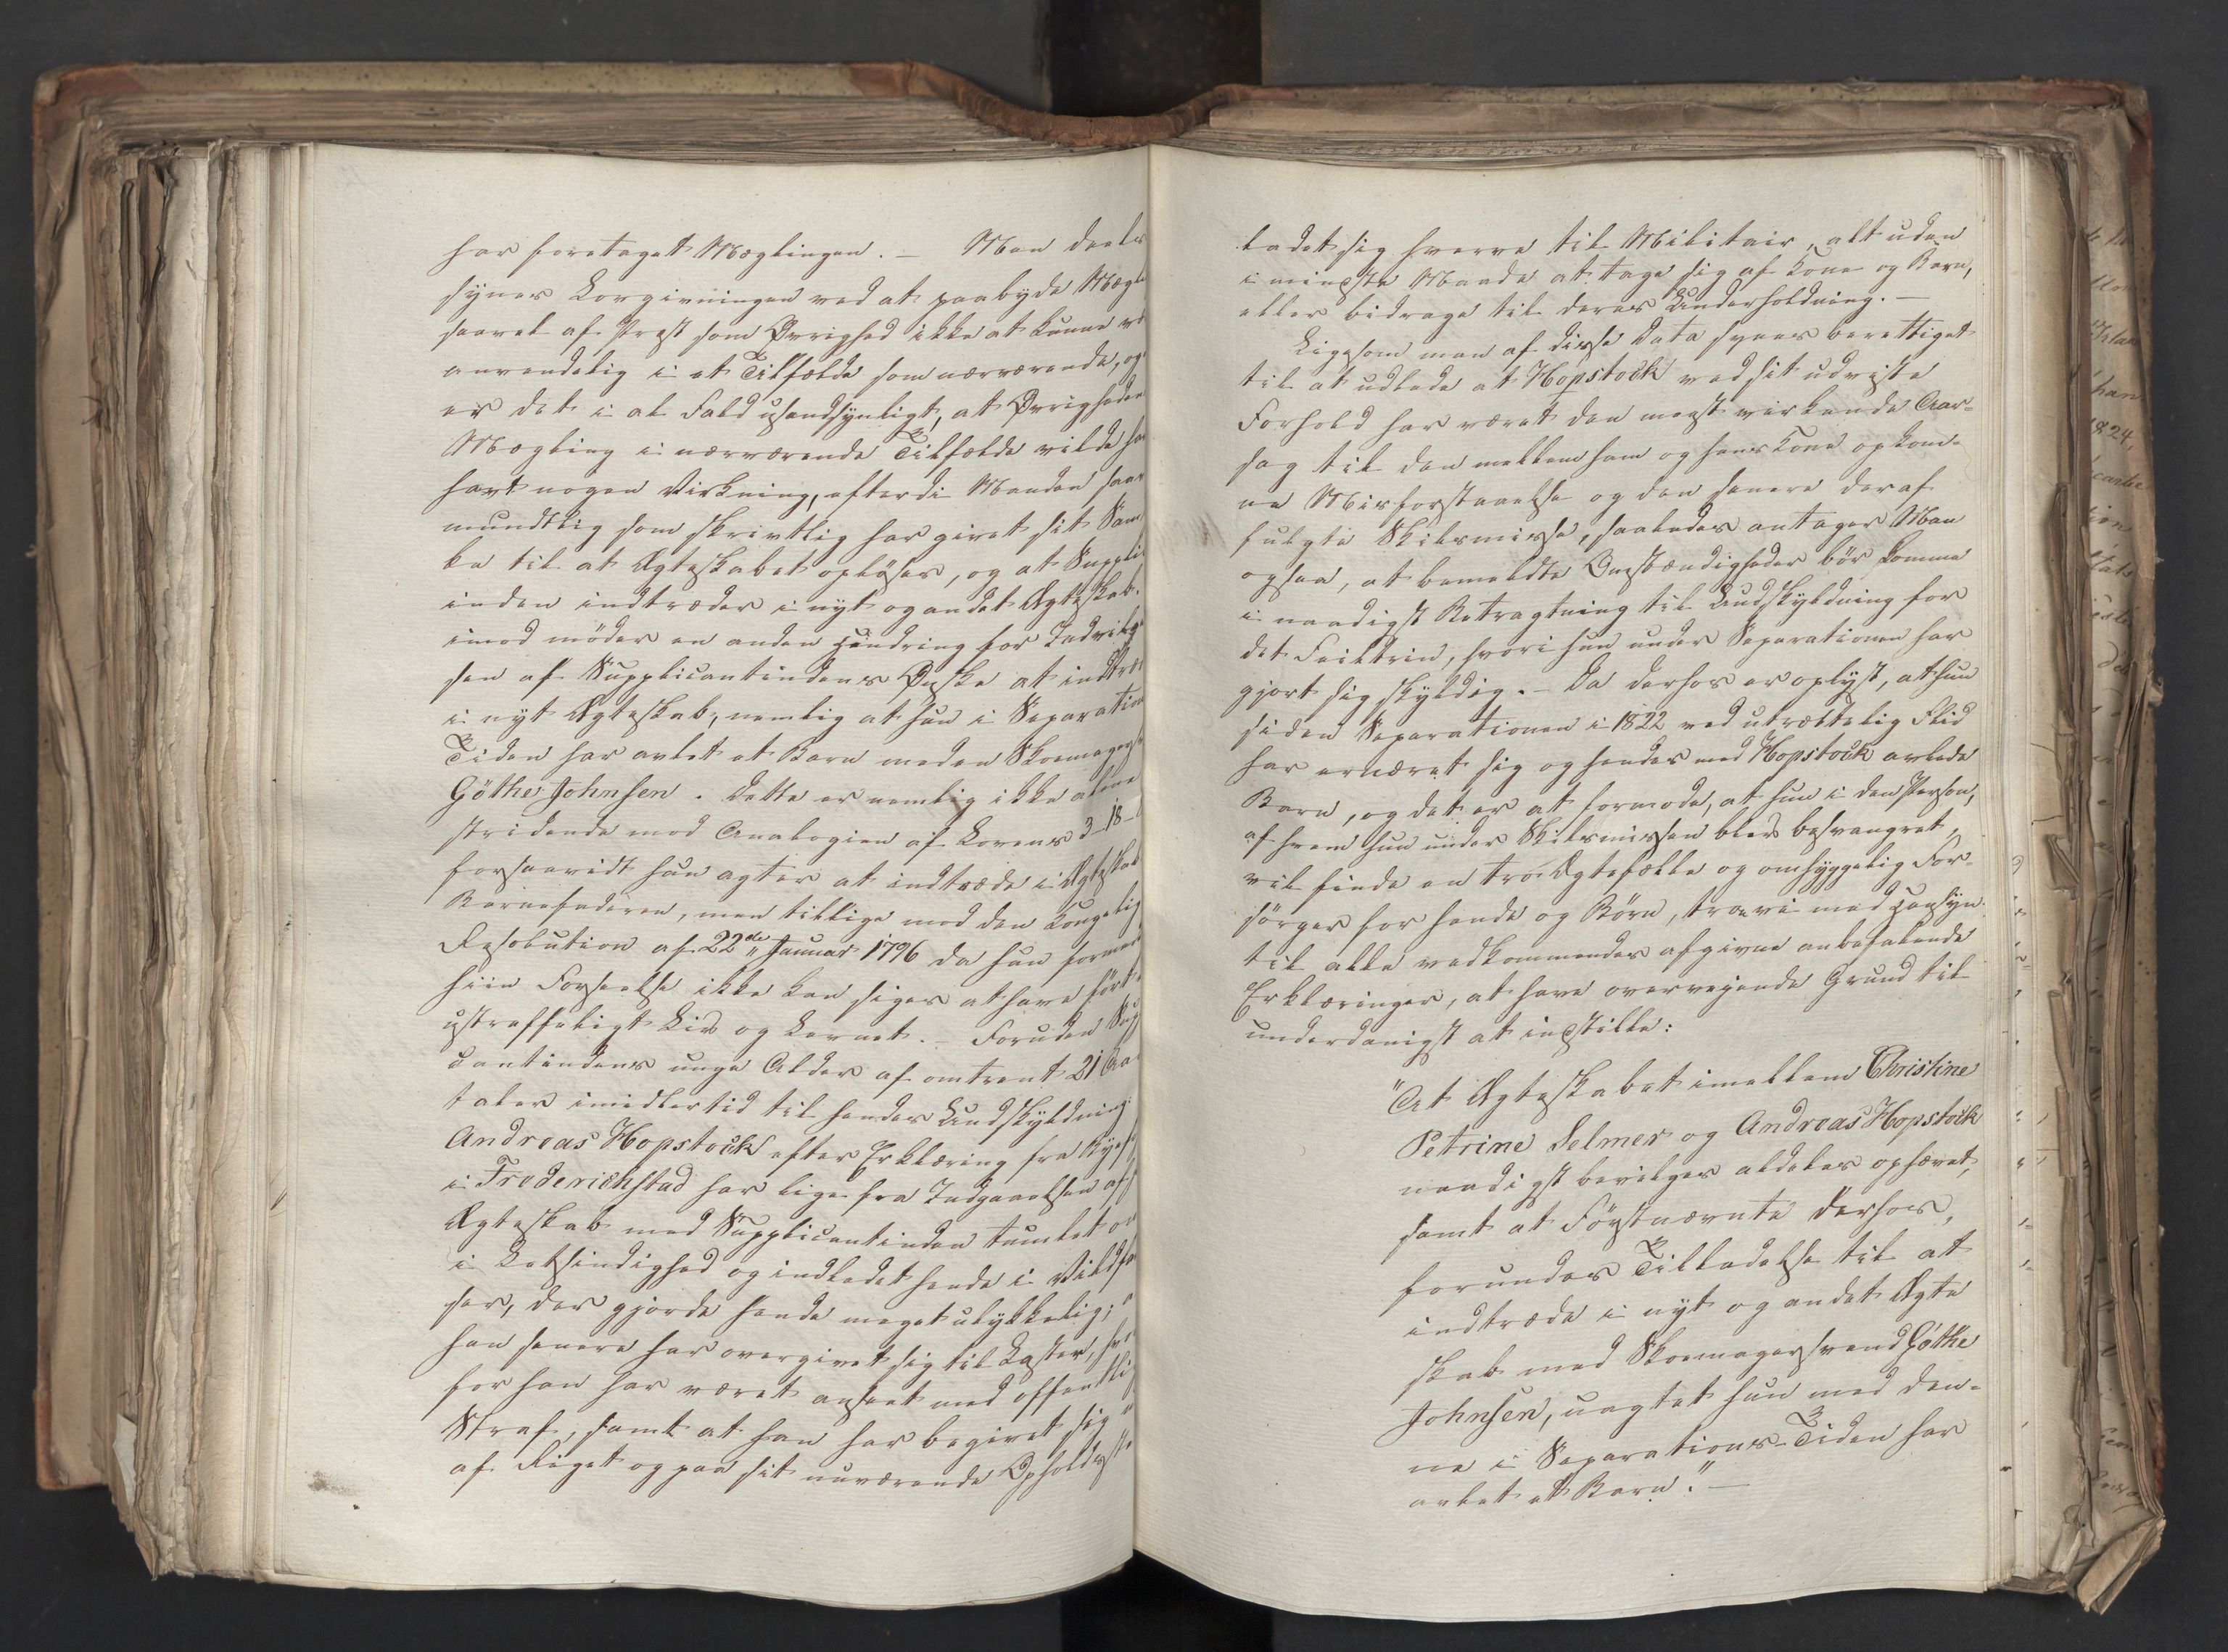 har foretaget Mæglingen. — Man deels
synes Lovgivningen ved at paabyde Mægl
saavel af Præst som Øvrighed ikke at kunne væ
anvendelig i et Tilfælde som nærværende, og
er det i al Fald usandsynligt, at Øvrigheden
Mægling i nærværende Tilfælde vilde ha
havt nogen Virkning, efterdi Manden saav
mundtlig som skrivtlig har givet sit Sam
ke til at Ægteskabet opløses, og at Suppli
inden indtræder i nyt og andet Ægteskab.
imod møder en anden Hindring for Indvilg
sen af Supplicantindens Ønske at indtræ
i nyt Ægteskab, nemlig at hun i Separation
Tiden har avlet et Barn med en Skomagers
Göthe Johnsen. Dette er nemlig ikke alene
stridende mod Analogien af Lovens 3-18-
forsaavidt hun agter at indtræde i Ægteskab
Barnefaderen, men tillige mod den Kongelig
Resolution af 22de Januar 1796 da hun formed
hiin Forseelse ikke kan siges at have ført
ustraffeligt Liv og Levnet. — Foruden Sup
cantindens unge Alder af omtrent 21 Aa
taler imidlertid til hendes Undskyldning
Andreas Hopstock efter Erklæring fra Byef
i Frederichstad har lige fra Indgaaelsen af
Ægteskab med Supplicantinden tumlet om
i Letsindighed og indledet hende i Vildfa
ser, der gjorde hende meget ulykkelig; "
han senere har overgivet sig til Laster, hv
for han har været anseet med offentlig
Straf, samt at han har begivet sig "
af Riget og paa sit nuværende Opholdsst
ladet sig hverve til Militair, alt uden
i mindste Maade at tage sig af Kone og Barn,
eller bidrage til deres Underholdning. —
Ligesom man af disse Data synes berettiget
til at udlede at Hopstock ved sit udviste
Forhold har været den meest virkende Aar-
sag til den mellem ham og hans Kone opkom-
ne Misforstaaelse og den senere deraf
fulgte Skilsmisse, saaledes antager Man
ogsaa, at bemeldte Omstændigheder bör komme
i naadigst Betragtning til Undskyldning for
det Feiltrin, hvori hun under Separationen har
gjort sig skyldig. — Da derhos er oplyst, at hun
siden Separationen i 1822 ved utrættelig Flid
har ernæret sig og hendes med Hopstock avlede
Barn, og det er at formode, at hun i den Person,
af hvem hun under Skilsmissen blev besvangret,
vil finde en tro Ægtefælle og omhyggelig For-
sörger for hende og Börn, troe vi med Hensyn
til alle vedkommendes afgivne anbefalende
Erklæringer, at have overveiende Grund til
underdanigst at indstille:
"At Ægteskabet imellem Christine
Petrine Selmer og Andreas Hopstock
naadigst bevilges aldeles ophævet,
samt at Förstnævnte derhos,
forundes Tilladelse til at
indtræde i nyt og andet Ægte
skab med Skomagersvend Göthe
Johnsen, uagtet hun med den-
ne i Separations-Tiden har
avlet et Barn." —